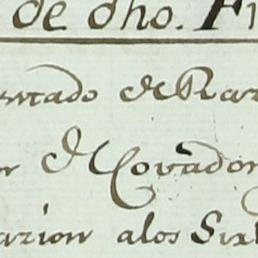 de dho. Fi
entado de Raz
n de Covadon
azion alos Sir